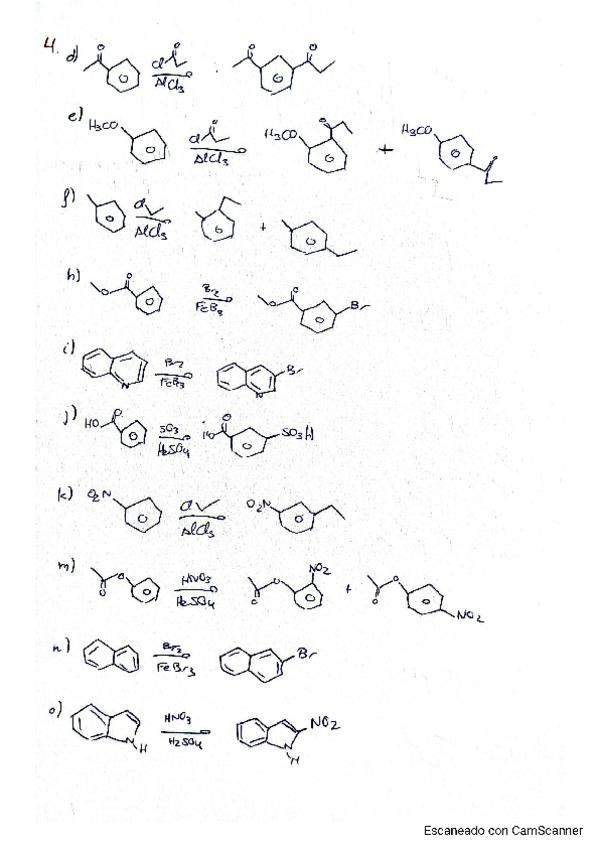 4. d) O Cl O AlCl3 O O
e) H3CO Cl O AlCl3 H3CO O + H3CO O
f) Cl AlCl3 +
h) O O Br2 FeB3 O O Br
i) N Br2 FeB3 N Br
j) HO O SO3 H2SO4 HO O SO3H
k) O2N Cl AlCl3 O2N
m) O O HNO3 H2SO4 O O NO2 + O O NO2
n) Br2 FeBr3 Br
o) N H HNO3 H2SO4 N H NO2
Escaneado con CamScanner